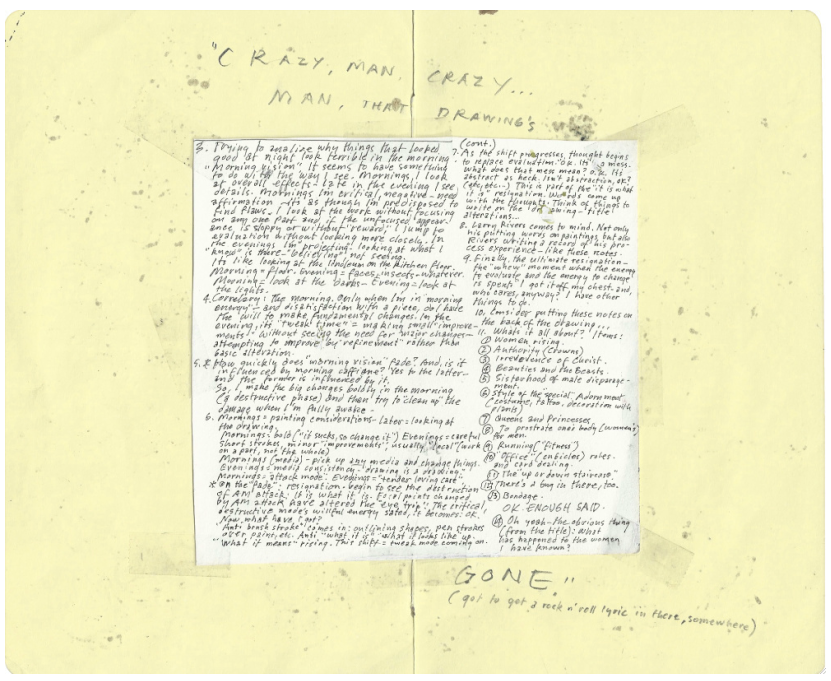 "CRAZY, MAN, CRAZY...
MAN, THAT DRAWING'S
3. Trying to analize why things that looked
good at night look terrible in the morning.
"Morning vision" It seems to have something
to do with the way I see. Mornings, I look
at overall effects - late in the evening I see
details. Mornings I'm critical, negative - need
affirmation - its as though I'm predisposed to
find flaws. I look at the work without focusing
on any one part and if the unfocused appear-
ance is sloppy or without "reward," I jump to
evaluation without looking more closely. In
the evenings I'm "projecting", looking at what I
"know" is there - "believing" not seeing.
Its like looking at the linoleum on the kitchen floor.
Morning = floor. Evening = faces, insects - whatever.
Morning = look at the darks - Evening = look at
the lights.
4. Correlary: The morning. Only when I'm in morning
energy - and disatisfaction with a piece, do I have
the will to make fundamental changes. In the
evening, its "tweak time" = making small improve-
ments - without seeing the need for major changes -
attempting to improve by "refinement" rather than
basic alteration.
5. * How quickly does "morning vision" fade? And, is it
influenced by morning caffeine? Yes to the latter -
and the former is influenced by it.
So, I make the big changes boldly in the morning
(a destructive phase) and then try to "clean up" the
damage when I'm fully awake -
6. Mornings = painting considerations - Later = looking at
the drawing.
Mornings = bold ("it sucks, so change it") Evenings = careful
short strokes, minor "improvements", usually "local" (work
on a part, not the whole)
Mornings (media) - pick up any media and change things.
Evenings = media consistency - "drawing is a drawing"
Mornings = attack mode: Evenings = "tender loving care"
* on the "fade": resignation - begin to see the destruction
of AM attack: It is what it is. Focal points changed
by AM attack have altered the "eye trip": The critical,
destructive mode's willful energy sated, it becomes: OK.
Now, what have I got?
Anti "brush stroke" comes in: outlining shapes, pen strokes
over paint, etc. Anti "what it is" - what it looks like up.
"What it means" rising. This shift = tweak mode coming on.
(cont.)
7. As the shift progresses, thought begins
to replace evaluation. O.K. its a mess.
What does that mess mean? O.K. Its
abstract as heck. Isn't abstraction, OK?
(etc, etc...) This is part of the "it is what
it is" resignation. Words come up
with the thoughts. Think of things to
write on the drawing - title
alterations...
8. Larry Rivers comes to mind. Not only
his putting words on paintings, but also
Rivers writing a record of his pro-
cess experience - like these notes.
9. Finally, the ultimate resignation -
the "whew" moment when the energy
to evaluate and the energy to change
is spent. I got it off my chest. and,
who cares, anyway? I have other
things to do.
10. Consider putting these notes on
the back of the drawing...
11. What's it all about? Items:
① Women rising.
② Authority (crowns)
③ Irrelevence of Christ.
④ Beauties and the Beasts.
⑤ Sisterhood of male disparage-
ment.
⑥ Style of the special Adornment
(costume, tattoo, decoration with
plants)
⑦ Queens and Princesses
⑧ To prostrate ones body (women's)
for men.
⑨ Running ("fitness")
⑩ "Office" (cubicles) roles -
and card dealing.
⑪ The "up or down staircase"
⑫ There's a bug in there, too.
⑬ Bondage.
OK. ENOUGH SAID.
⑭ Oh yeah - the obvious thing
(from the title): What
has happened to the women
I have known?
GONE"
(got to get a rock n' roll lyric in there, somewhere)